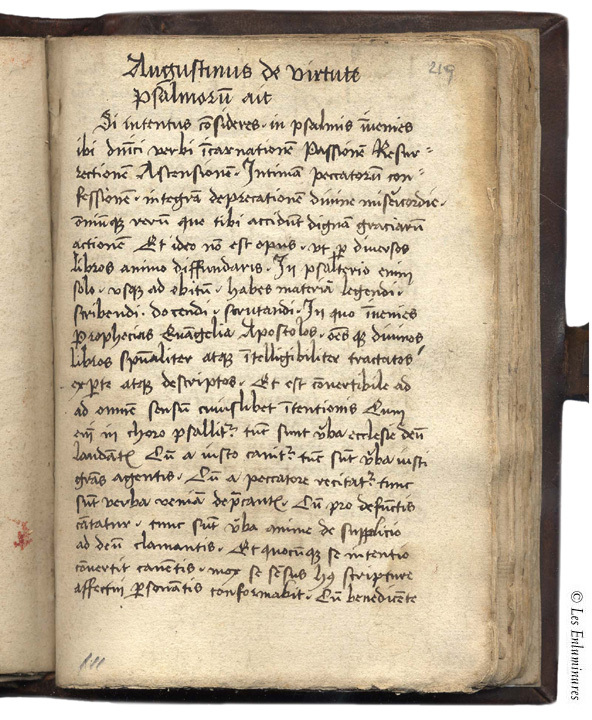 Augustinus de virtute
psalmorū ait
219
Si intentus cōsideres · in psalmis īuenies
ibi dn̄ici verbi īcarnationem̄ Passionem̄ Resur=
rectionem̄ Astensionem̄ · Intimā peccatorū con-
fessionem̄ · integrā deprecationem̄ divine misericordie ·
omniūqꝫ rerum̄ que tibi accidūt dignā graciarū
actionem̄ Et ideo nō est opus · vt ꝑ diversos
libros animo diffundaris · In psalterio enim
solo · vsqꝫ ad obitum̄ · habes materiā legendi ·
scribendi · docendi · scrutandi · In quo īuenies
Prophecias Euāgelia Apostolos · oēs qꝫ divinos
libros spūaliter atqꝫ ītelligibiliter tractatos
exꝑte atqꝫ descriptos · Et est cōvertibile ad
ad omnem̄ sensum̄ cuiuslibet ītentionis Cum
em̄ in choro psallit᷑ · tūc sunt v̄ba ecclesie deū
laudāt Cū a iusto canit᷑ · tūc sūt v̄ba iusti
grās agentis · Cū a peccatore recitat᷑ · tunc
sūt verba veniam̄ dep̄cant · Cū pro defūctis
cātatur · tunc sūt v̄ba anime de supplicio
ad deū clamantis · Et quocūqꝫ se intentio
cōvertit canētis · mox se sēsus hꝰ scripture
affectui ꝑsonātis conformabit · Cū benedicēte
© Les Enluminures